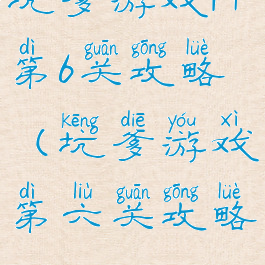 坑爹游戏11
dì guān gōng lüè
第6关攻略
kēng diē yóu xì
(坑爹游戏
dì liù guān gōng lüè
第六关攻略